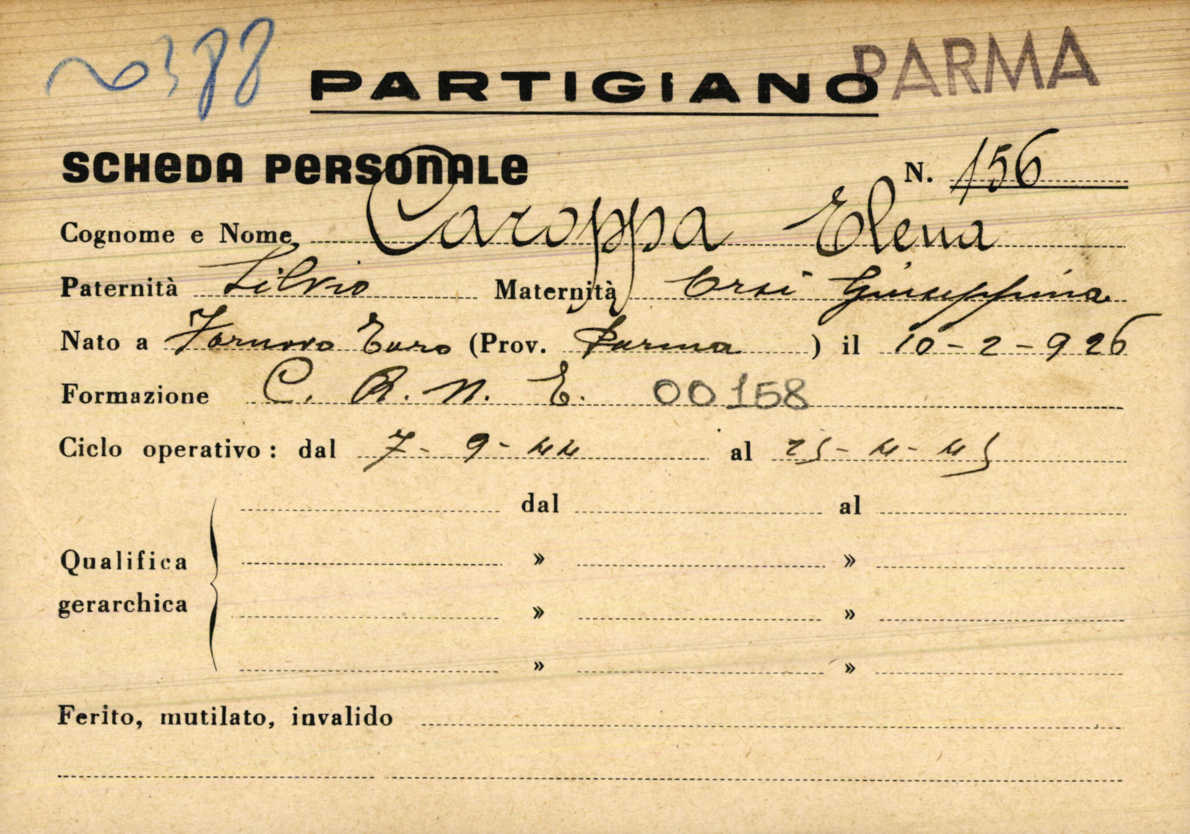 20388
PARTIGIANO PARMA
SCHEDA PERSONALE N. 156
Cognome e Nome Caroppa Elena
Paternità Silvio Maternità Orsi Giuseppina
Nato a Fornovo Taro (Prov. Parma) il 10-2-926
Formazione C. R. N. E. 00158
Ciclo operativo: dal 7-9-44 al 25-4-45
dal al
Qualifica » »
gerarchica » »
» »
Ferito, mutilato, invalido